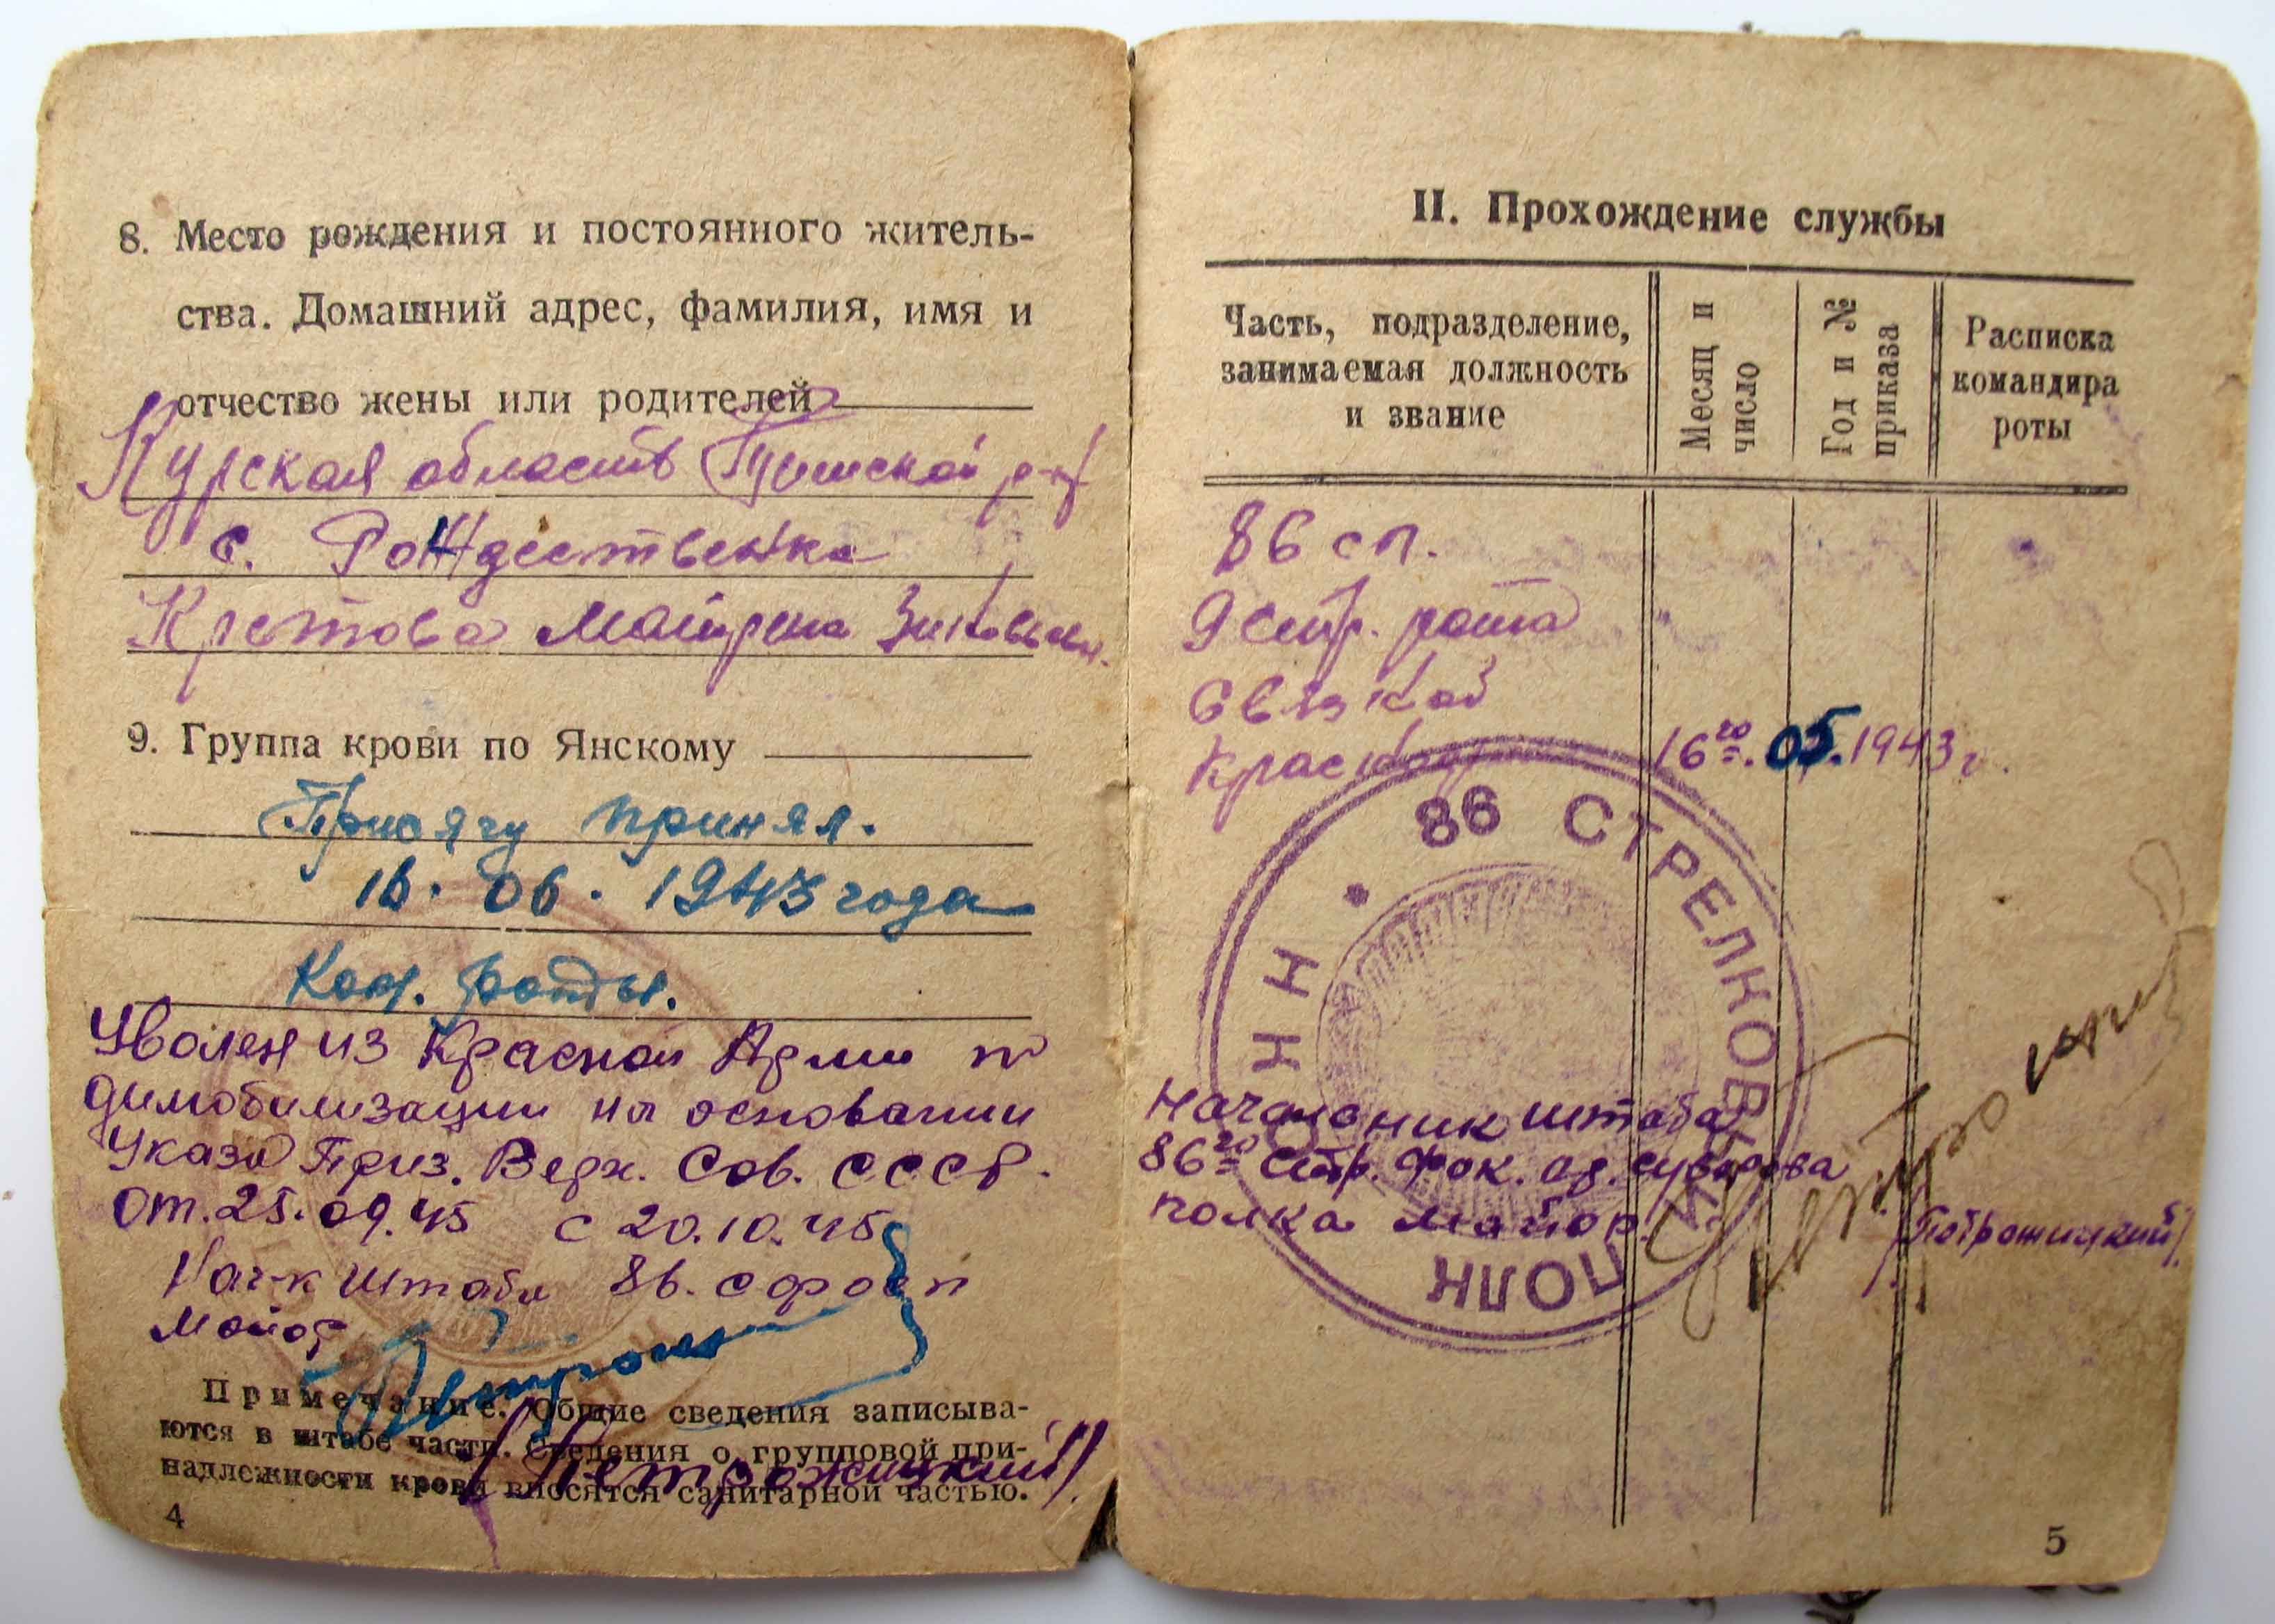 8. Место рождения и постоянного житель-
ства. Домашний адрес, фамилия, имя и
отчество жены или родителей
Курская область р-н
с. Рождественка
Кретова Матрена
9. Группа крови по Янскому
Присягу принял.
16. 06. 1943 года
Ком. роты.
Уволен из Красной Армии по
димобилизации на основании
Указа През. Верх. Сов. СССР.
от. 25.09.45 с 20.10.45
Нач-к штаба 86. с фосп
майор
Примечание. Общие сведения записыва-
ются в штабе части. Сведения о групповой при-
надлежности крови вносятся санитарной частью.
/Петрожицкий/
4
II. Прохождение службы
Часть, подразделение,
занимаемая должность
и звание
Месяц и
число
Год и №
приказа
Расписка
командира
роты
86 сп.
9 стр. рота
связной
16го. 05. 1943 г.
86 СТРЕЛКОВЫЙ ПОЛК
НКО
Начальник штаба
86го стр. фок. од. суворова
полка майор
/Петрожицкий/
5